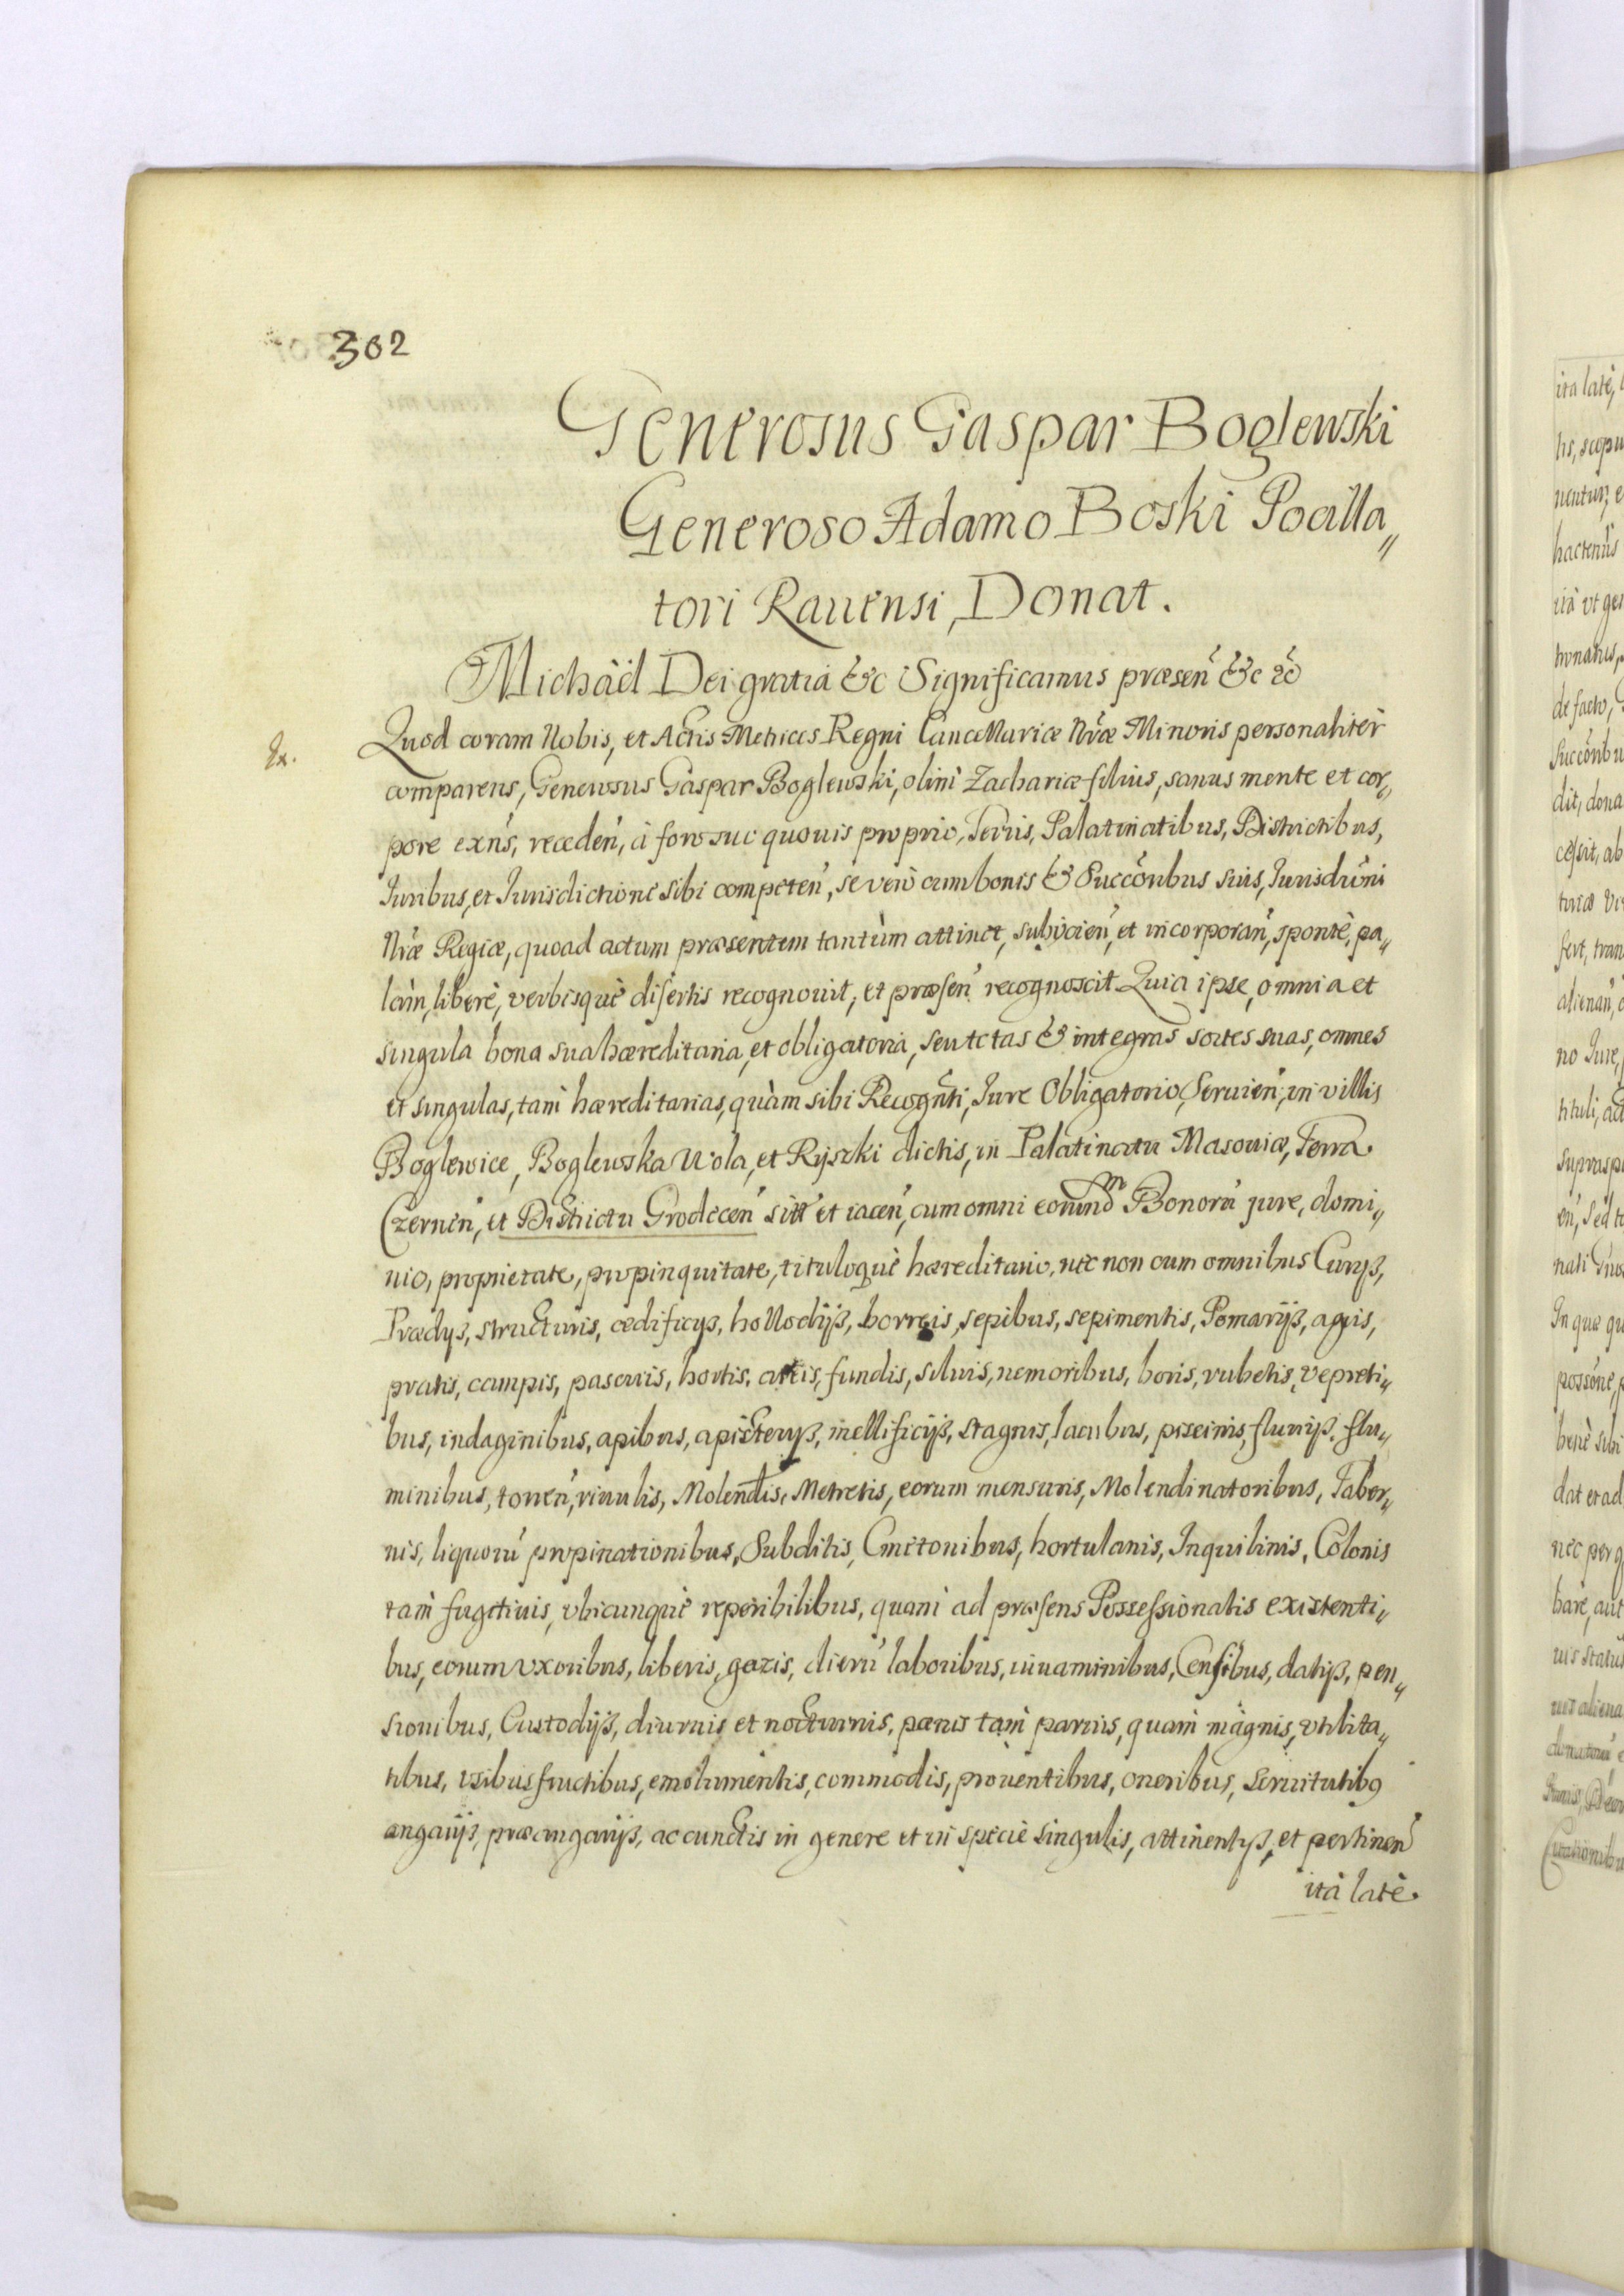 302
Generosus Gaspar Boglewski
Generoso Adamo Boski Pocilla„
tori Rauensi, Donat.
Michaël Dei gratia &c Significamus præsen̄ &c &c
Ex. Quod coram Nobis, et Actis Metrices Regni Cancellariæ Nr̄æ Minoris personalitèr
comparens, Generosus Gaspar Boglewski, olim Zachariæ filius, sanus mente et cor„
pore exn̄s, receden̄, à foro suo quouis proprio, Terris, Palatinatibus, Districtibus,
Iuribus, et Iurisdictione sibi competen̄, se verò cum bonis & Succōribus suis, Iurisdic̄oni
Nr̄æ Regiæ, quoad actum præsentem tantùm attinet, subijcien̄, et incorporan̄, spontè, pa„
làm, liberè, verbisquè disertis recognouit, et præsen̄ recognoscit Quia ipse, omnia et
singula bona sua hæreditaria, et obligatoria, seu totas & integras sortes suas, omnes
et singulas, tam hæreditarias, quàm sibi Recogn̄ti, Iure Obligatorio, Seruien̄, in villis
Boglewice, Boglewska Wola, et Ryszki dictis, in Palatinatu Masouiæ, Terra
Czernen̄, et Districtu Grodecen̄ sitt et iacen̄, cum omni eorund̄m Bonorū jure, domi„
nio, proprietate, propinquitate, tituloquè hæreditario, nec non cum omnibus Curijs,
Prædijs, structuris, ædificijs, hollodijs, horreis, sepibus, sepimentis, Pomarijs, agris,
pratis, campis, pascuis, hortis, areis, fundis, siluis, nemoribus, boris, rubetis, vepreti„
bus, indaginibus, apibus, apisterijs, mellificijs, stagnis, lacubus, piscinis, fluuijs, flu„
minibus, torren̄, riuulis, Molend̄is, Metretis, eorum mensuris, Molendinatoribus, Taber„
nis, liquorū propinationibus, Subditis, Cmetonibus, hortulanis, Inquilinis, Colonis
tam fugitiuis, vbicunquè reperibilibus, quam ad præsens Possessionatis existenti„
bus, eorum vxoribus, liberis, gazis, dierū laboribus, iuuaminibus, Censibus, datijs, pen„
sionibus, Custodijs, diurnis et nocturnis, pœnis tam paruis, quam magnis, vtilita„
tibus, vsibusfructibus, emolumentis, commodis, prouentibus, oneribus, seruitutib9
angarijs, præangarijs, ac cunctis in genere et in specie singulis, attinentijs, et pertinen̄
ità latè